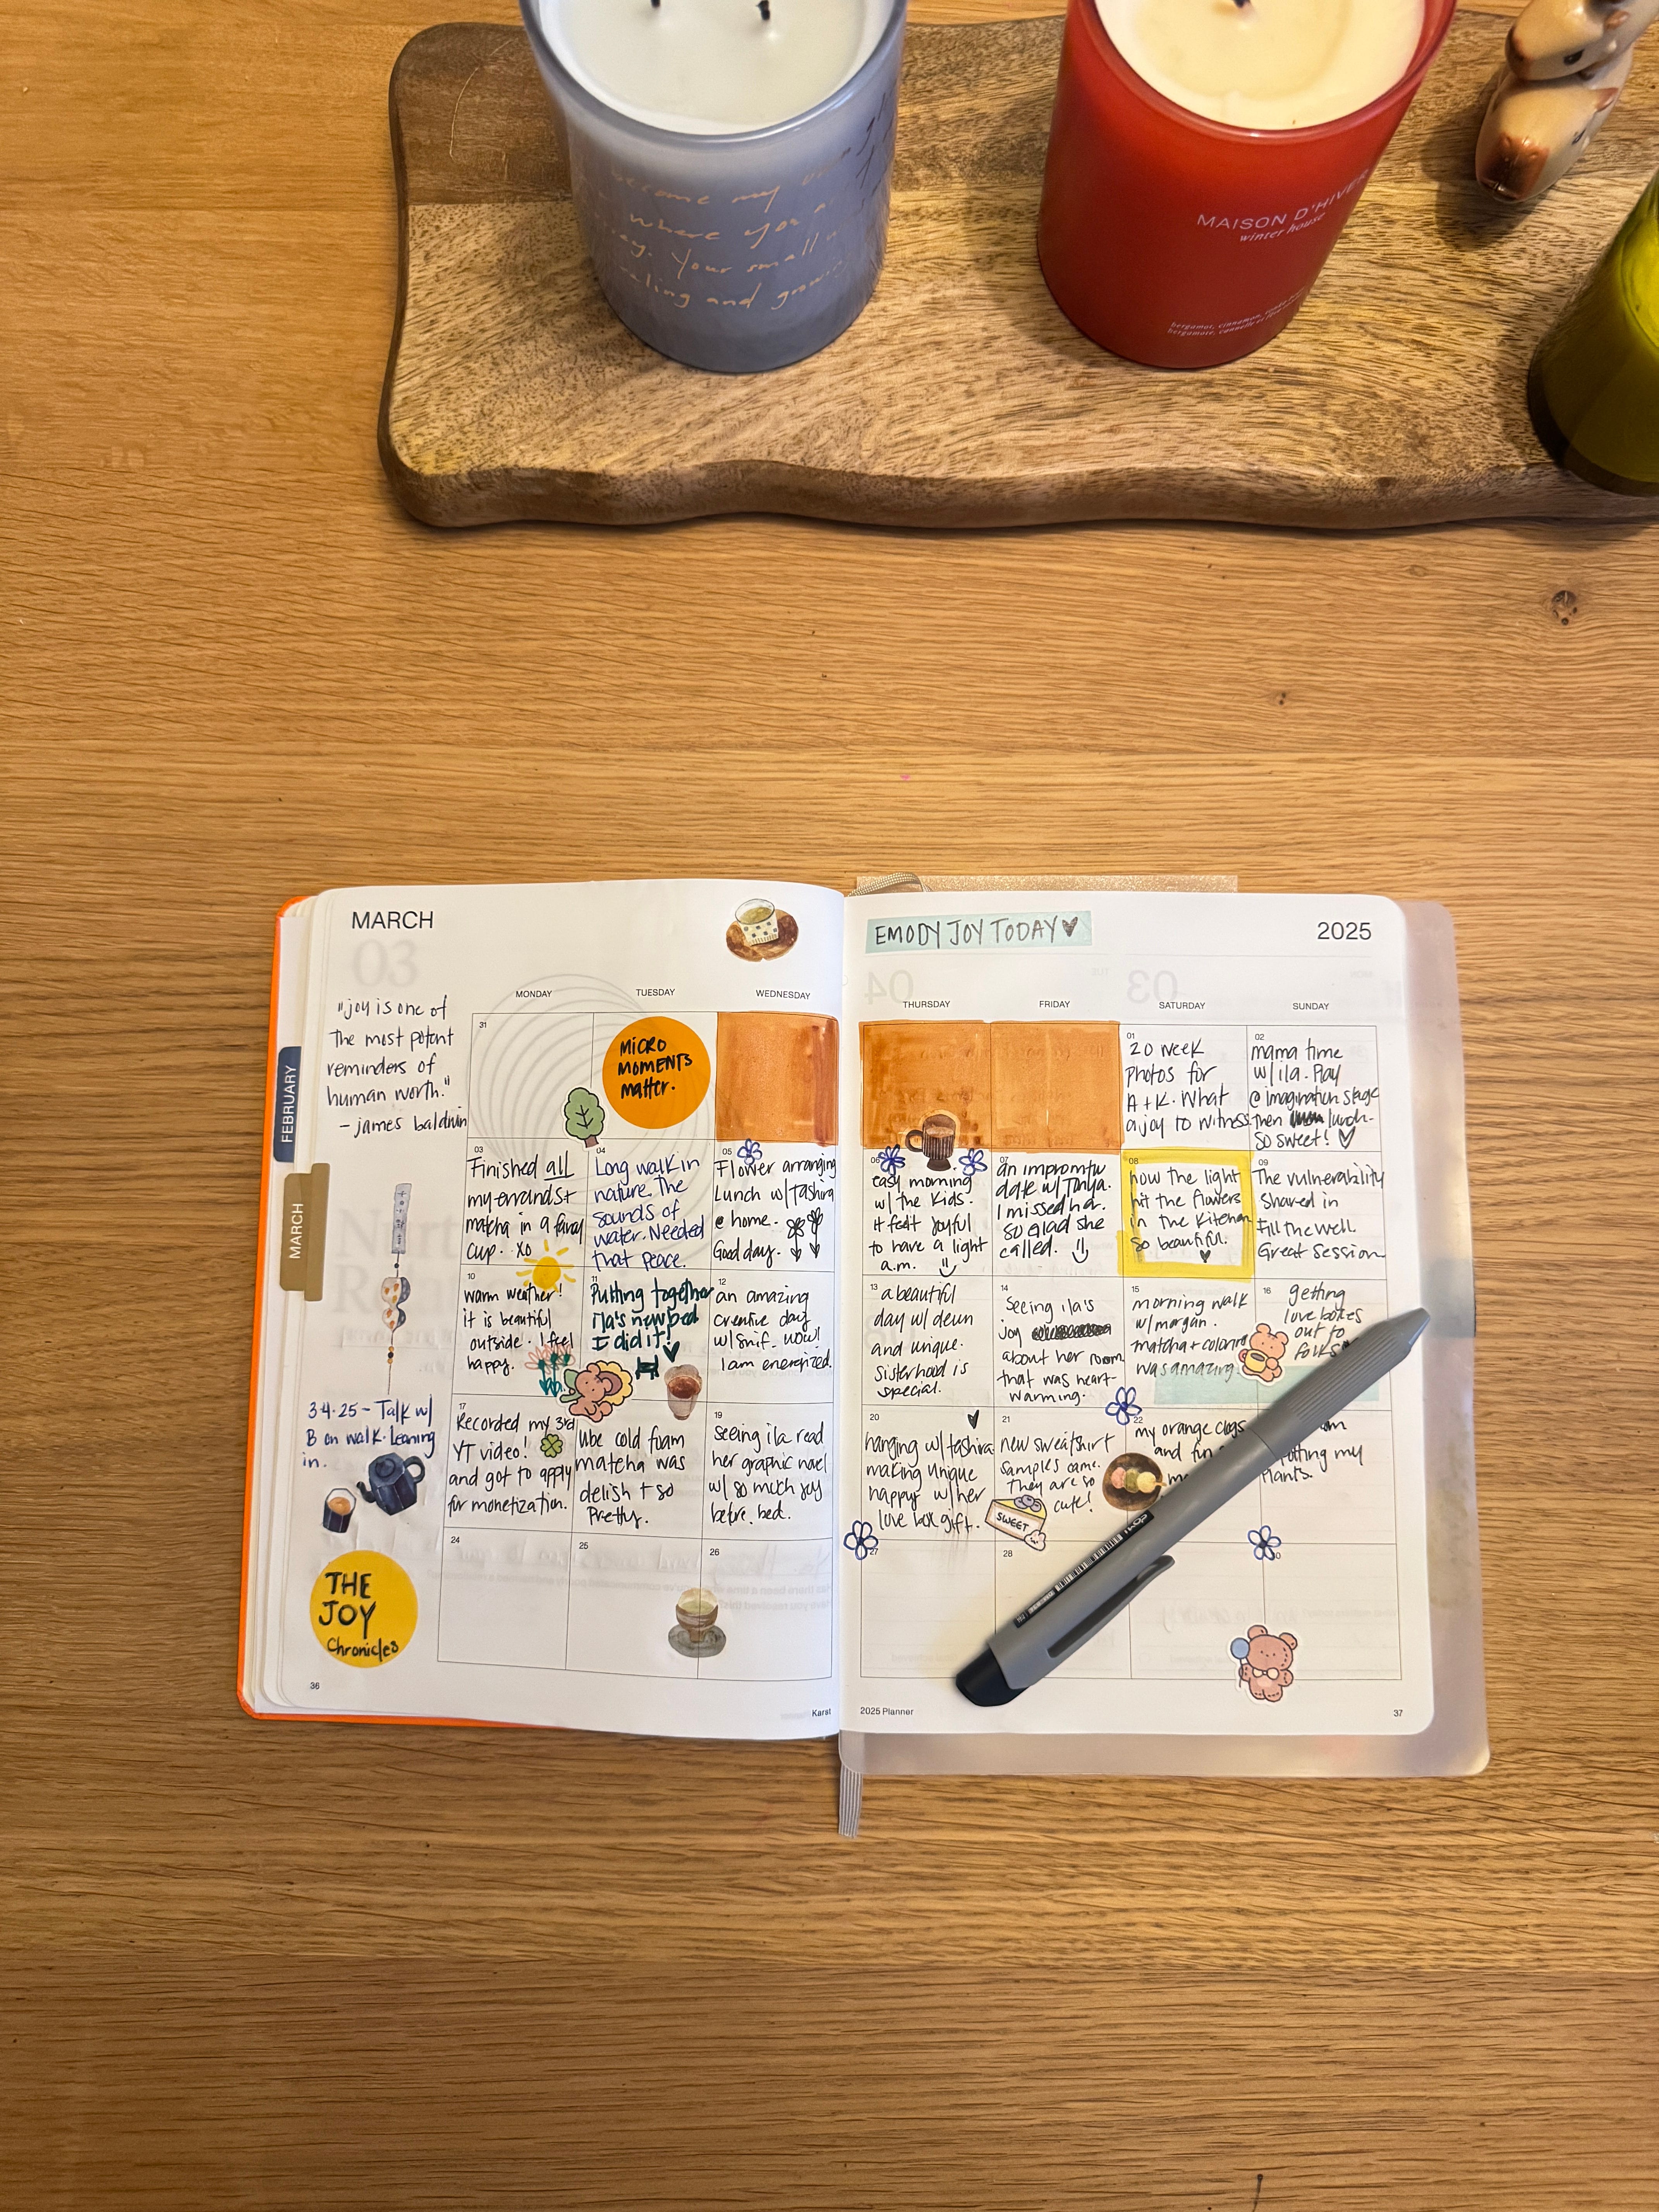 become my
where you
Your small
and
MAISON D'HIVER
winter house
MARCH
03
"joy is one of
the most potent
reminders of
human worth."
- james baldwin
FEBRUARY
MARCH
3·4·25 - Talk w/
B on walk. Leaning
in.
THE
JOY
Chronicles
36
MONDAY
TUESDAY
WEDNESDAY
31
MICRO
MOMENTS
matter.
03
Finished all
my errands +
matcha in a fancy
cup. xo
04
Long walk in
nature. The
sounds of
water. Needed
that peace.
05
Flower arranging
Lunch w/ Tashira
@ home.
Good day.
10
warm weather!
it is beautiful
outside. I feel
happy.
11
Putting together
Ila's new bed
I did it!
12
an amazing
creative day
w/ Snif. wow!
I am energized.
17
Recorded my 3rd
YT video!
and got to apply
for monetization.
ube cold foam
matcha was
delish + so
pretty.
19
Seeing ila read
her graphic novel
w/ so much joy
before bed.
24
25
26
Karst
EMODY JOY TODAY
2025
THURSDAY
FRIDAY
SATURDAY
SUNDAY
01
20 week
photos for
A + K. What
a joy to witness.
02
mama time
w/ ila. Play
@ imagination stage
then lunch.
So sweet!
06
easy morning
w/ the kids.
it felt joyful
to have a light
a.m.
07
an impromtu
date w/ Tanya.
I missed her.
So glad she
called.
08
how the light
hit the flowers
in the kitchen
so beautiful.
09
The vulnerability
shared in
Fill the well.
Great session
13
a beautiful
day w/ devn
and unique.
sisterhood is
special.
14
Seeing ila's
joy
about her room
that was heart-
warming.
15
morning walk
w/ morgan.
matcha + coloring
was amazing.
16
getting
love boxes
out to
folks
20
hanging w/ tashira
making unique
happy w/ her
love box gift.
21
new sweatshirt
samples came.
They are so
cute!
SWEET
22
my orange clogs
and fun
plants.
my
27
28
2025 Planner
37